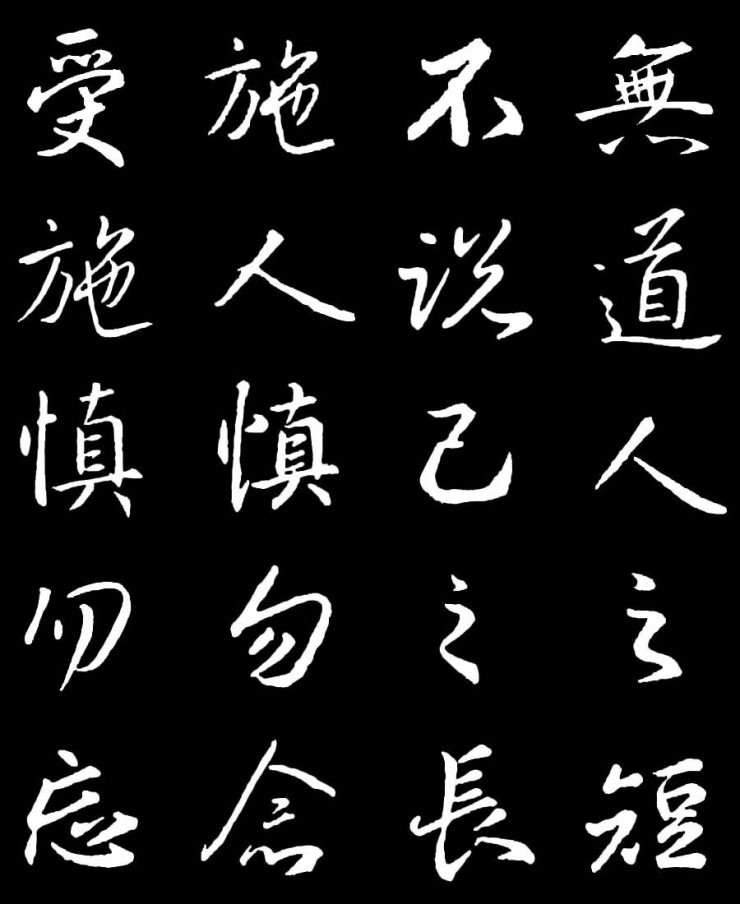 無道人之短
不説己之長
施人慎勿念
受施慎勿忘